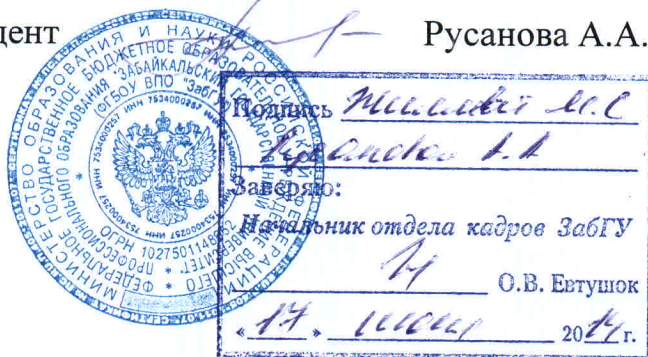 цент Русанова А.А.
МИНИСТЕРСТВО ОБРАЗОВАНИЯ И НАУКИ РОССИЙСКОЙ ФЕДЕРАЦИИ
ФЕДЕРАЛЬНОЕ ГОСУДАРСТВЕННОЕ БЮДЖЕТНОЕ ОБРАЗОВАТЕЛЬНОЕ
ВЫСШЕГО ПРОФЕССИОНАЛЬНОГО ОБРАЗОВАНИЯ "ЗАБАЙКАЛЬСКИЙ ГОСУДАРСТВЕННЫЙ
(ФГБОУ ВПО "ЗабГУ")
ИНН 7534000257
Подпись
Русановой А.А
Заверяю:
Начальник отдела кадров ЗабГУ
О.В. Евтушок
« 17 » июня 2014 г.